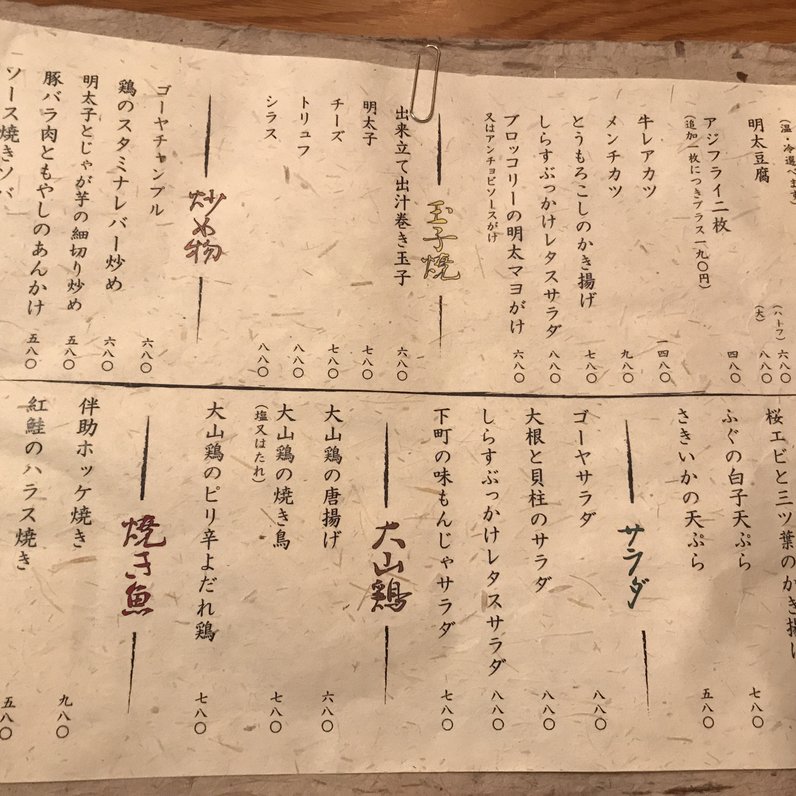 (温・冷選べます)
(ハトフ) 六八〇
明太豆腐
(大) 八八〇
アジフライ二枚 四八〇
(追加一枚につきプラス一九〇円)
牛レアカツ 一四八〇
メンチカツ 九八〇
とうもろこしのかき揚げ 七八〇
しらすぶっかけレタスサラダ 八八〇
ブロッコリーの明太マヨがけ 六八〇
又はアンチョビソースがけ
玉子焼
出来立て出汁巻き玉子 六八〇
明太子 七八〇
チーズ 七八〇
トリュフ 八八〇
シラス 八八〇
炒め物
ゴーヤチャンプル 六八〇
鶏のスタミナレバー炒め 六八〇
明太子とじゃが芋の細切り炒め 五八〇
豚バラ肉ともやしのあんかけ 五八〇
ソース焼きソバ
桜エビと三ツ葉のかき揚げ 七八〇
ふぐの白子天ぷら
さきいかの天ぷら 五八〇
サラダ
ゴーヤサラダ 八八〇
大根と貝柱のサラダ 八八〇
しらすぶっかけレタスサラダ 八八〇
下町の味もんじゃサラダ 七八〇
大山鶏
大山鶏の唐揚げ 六八〇
大山鶏の焼き鳥 七八〇
(塩又はたれ)
大山鶏のピリ辛よだれ鶏 七八〇
焼き魚
伴助ホッケ焼き 九八〇
紅鮭のハラス焼き 五八〇